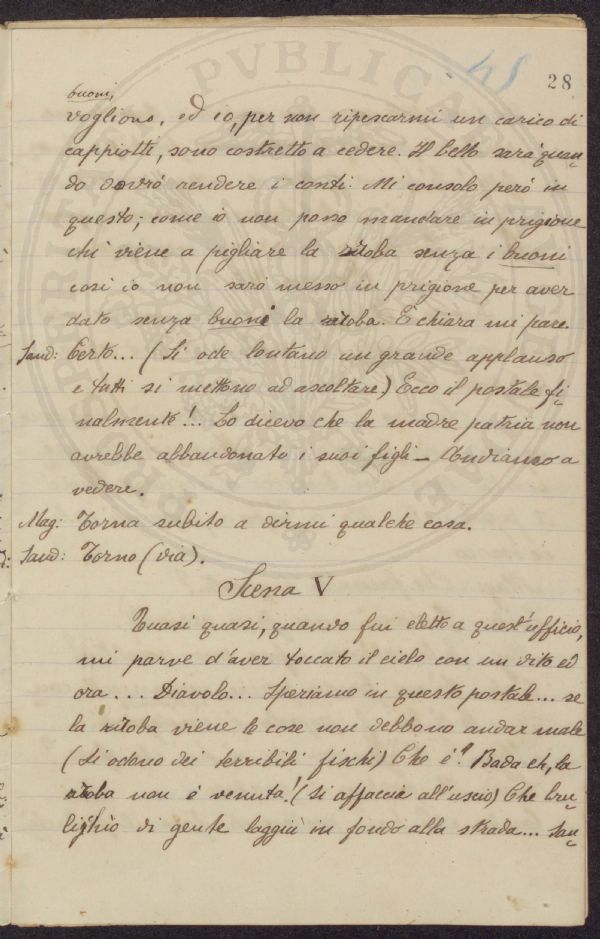 54
28
buoni,
vogliono, ed io, per non ripescarmi un carico di
cappiotti, sono costretto a cedere. Il bello sarà quan=
do dovrò rendere i conti. Mi consolo però in
questo; come io non posso mandare in prigione
chi viene a pigliare la roba senza i buoni
così io non sarò messo in prigione per aver
dato senza buoni la roba. È chiara mi pare.
Sand: Certo... (Si ode lontano un grande applauso
e tutti si mettono ad ascoltare) Ecco il postale fi=
nalmente!.. Lo dicevo che la madre patria non
avrebbe abbandonato i suoi figli – Andiamo a
vedere.
Mag: Torna subito a dirmi qualche cosa.
Sand: Torno (via).
Scena V
Quasi quasi, quando fui eletto a quest'ufficio,
mi parve d'aver toccato il cielo con un dito ed
ora... Diavolo... Speriamo in questo postale... se
la roba viene le cose non debbono andar male
(Si odono dei terribili fischi) Che è? Bada eh, la
roba non è venuta! (Si affaccia all'uscio) Che bru=
lichìo di gente laggiù in fondo alla strada... San=